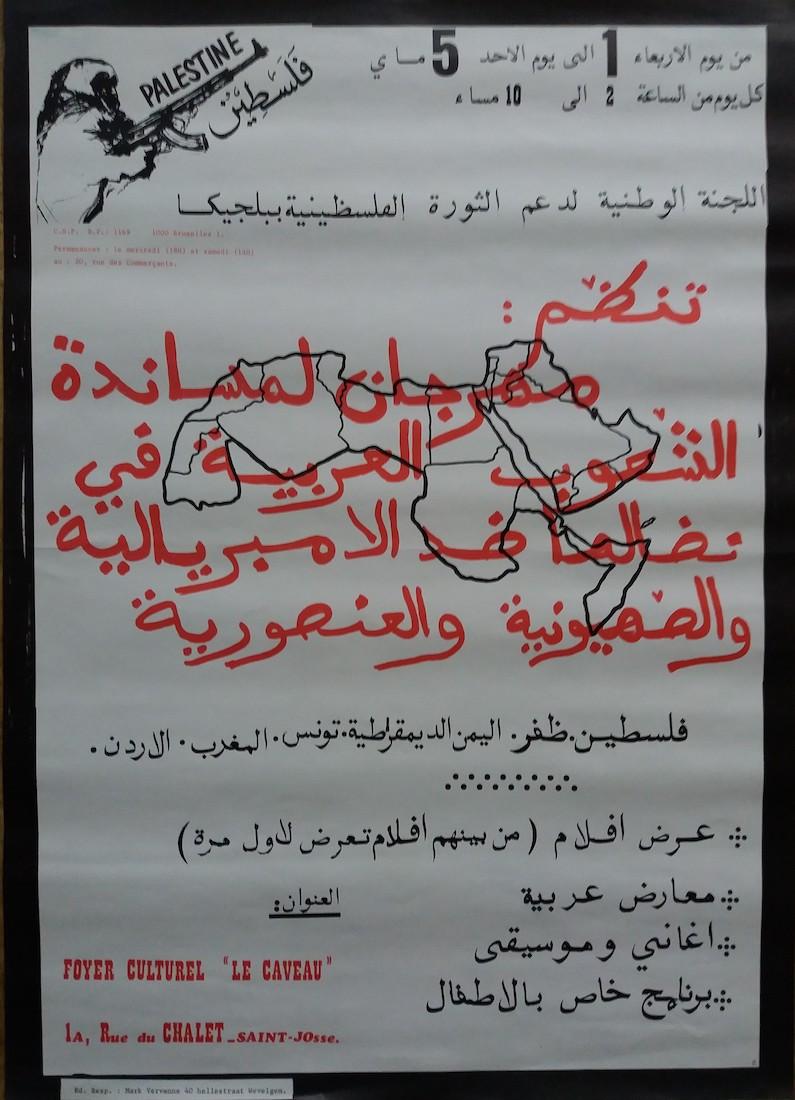 من يوم الاربعاء 1 الى يوم الاحد 5 ماي
كل يوم من الساعة 2 الى 10 مساء
PALESTINE
فلسطين
اللجنة الوطنية لدعم الثورة الفلسطينية ببلجيكا
C.N.P. B.P.: 1169 1000 Bruxelles 1.
Permanences : le mercredi (18H) et samedi (14H)
au : 20, rue des Commerçants.
تنظم :
مهرجان لمساندة
الشعوب العربية في
نضالها ضد الامبريالية
والصهيونية والعنصورية
فلسطين. ظفر. اليمن الديمقراطية. تونس. المغرب. الاردن.
عرض افلام (من بينهم افلام تعرض لاول مرة)
معارض عربية
اغاني وموسيقى
برنامج خاص بالاطفال
العنوان:
FOYER CULTUREL "LE CAVEAU"
1A, Rue du CHALET _ SAINT-JOsse.
Ed. Resp. : Mark Vervenne 40 hellestraat Wevelgem.